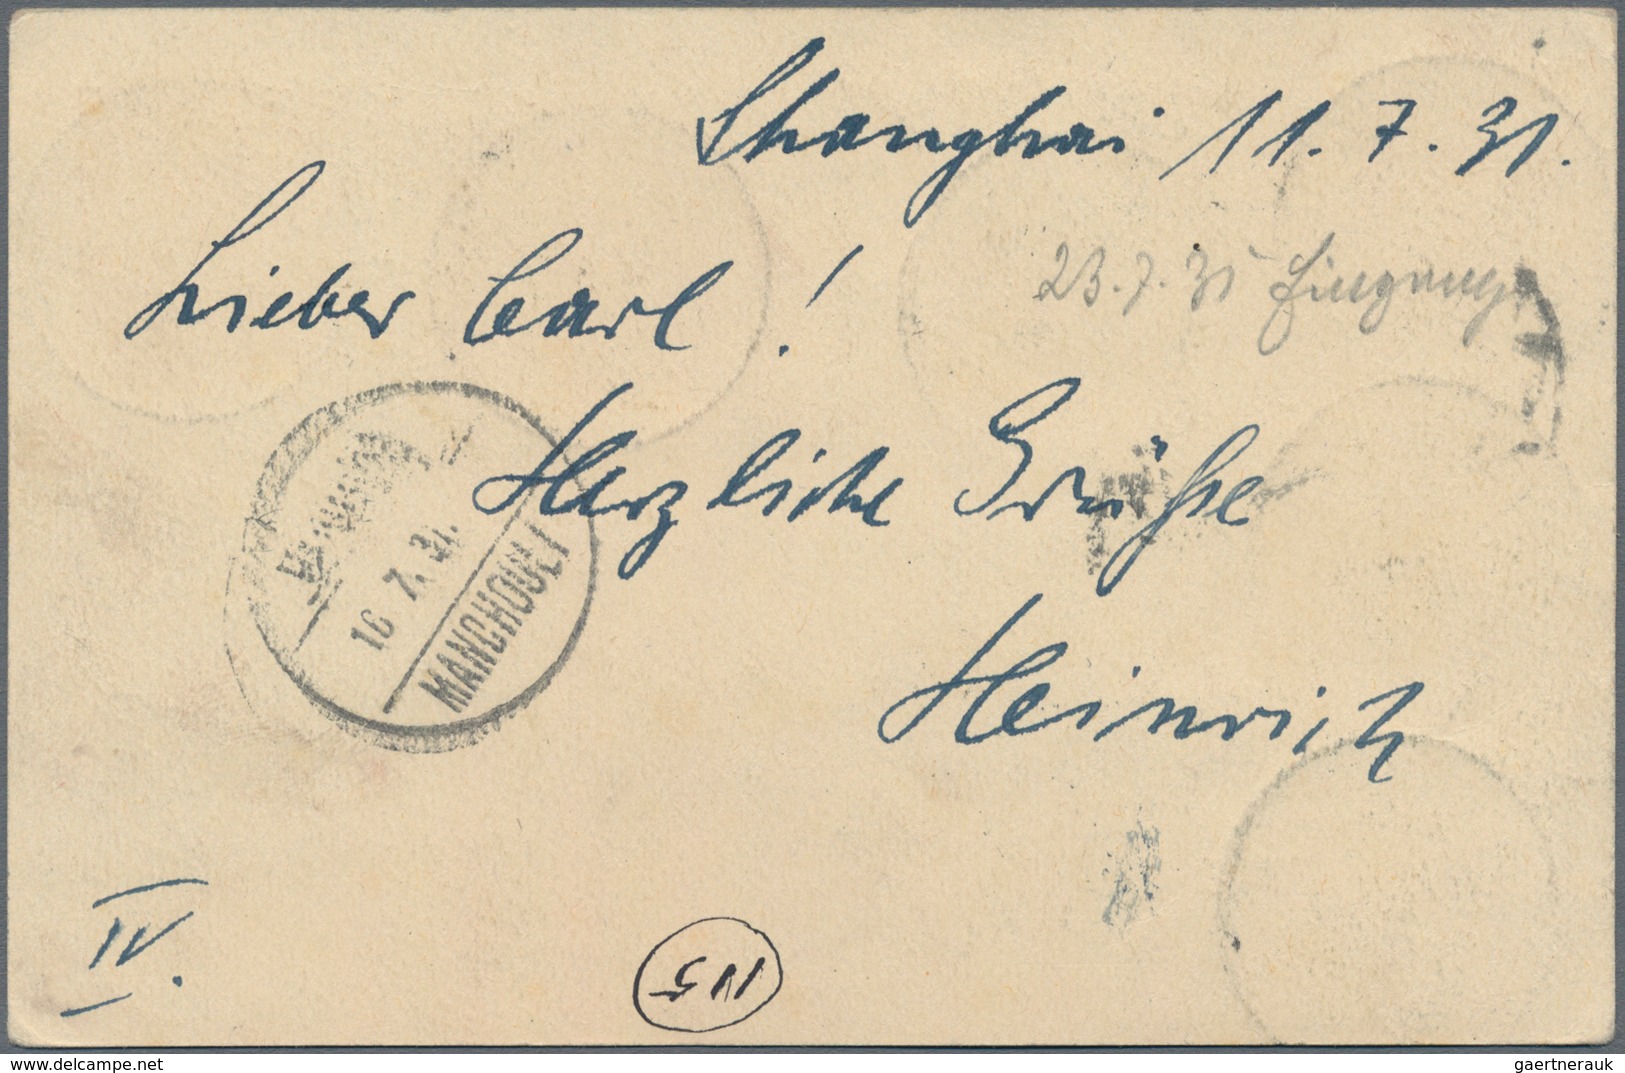 Shanghai 11.7.31.
23.7.31 Eingang
Lieber Carl!
Herzliche Grüße
16 7. 31.
MANCHOULI
Heinrich
IV.
www.delcampe.net
gaertnerauk